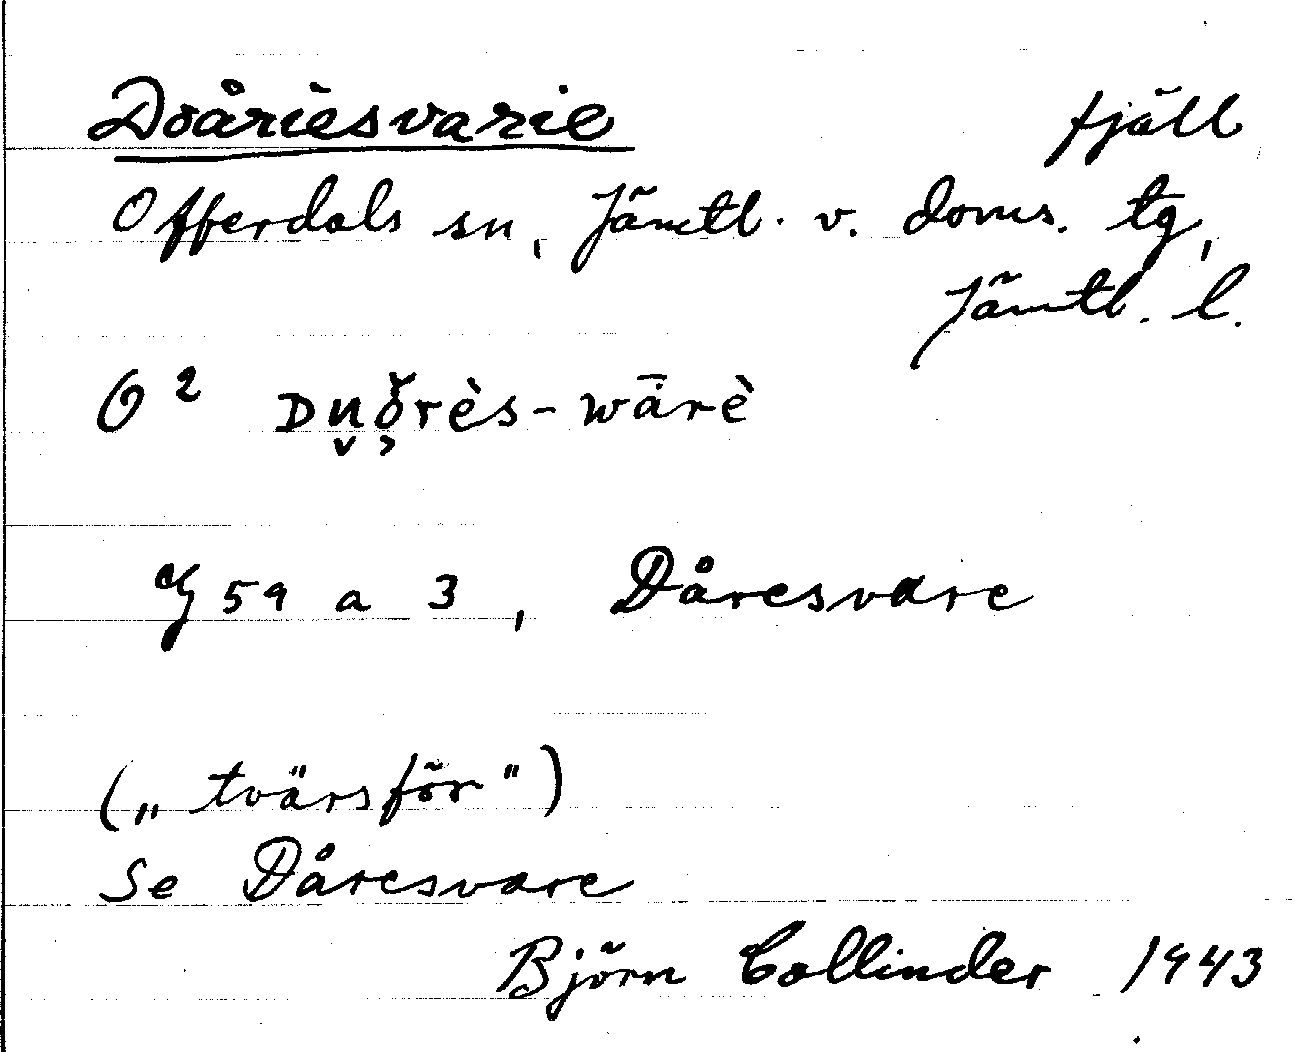 Doåriesvarie fjäll
Offerdals sn, Jämtl. v. doms. tg,
Jämtl. l.
O² Dṷǒ̧rès-wārè
G 59 a 3, Dåresvare
(„tvärsför")
Se Dåresvare
Björn Collinder 1943